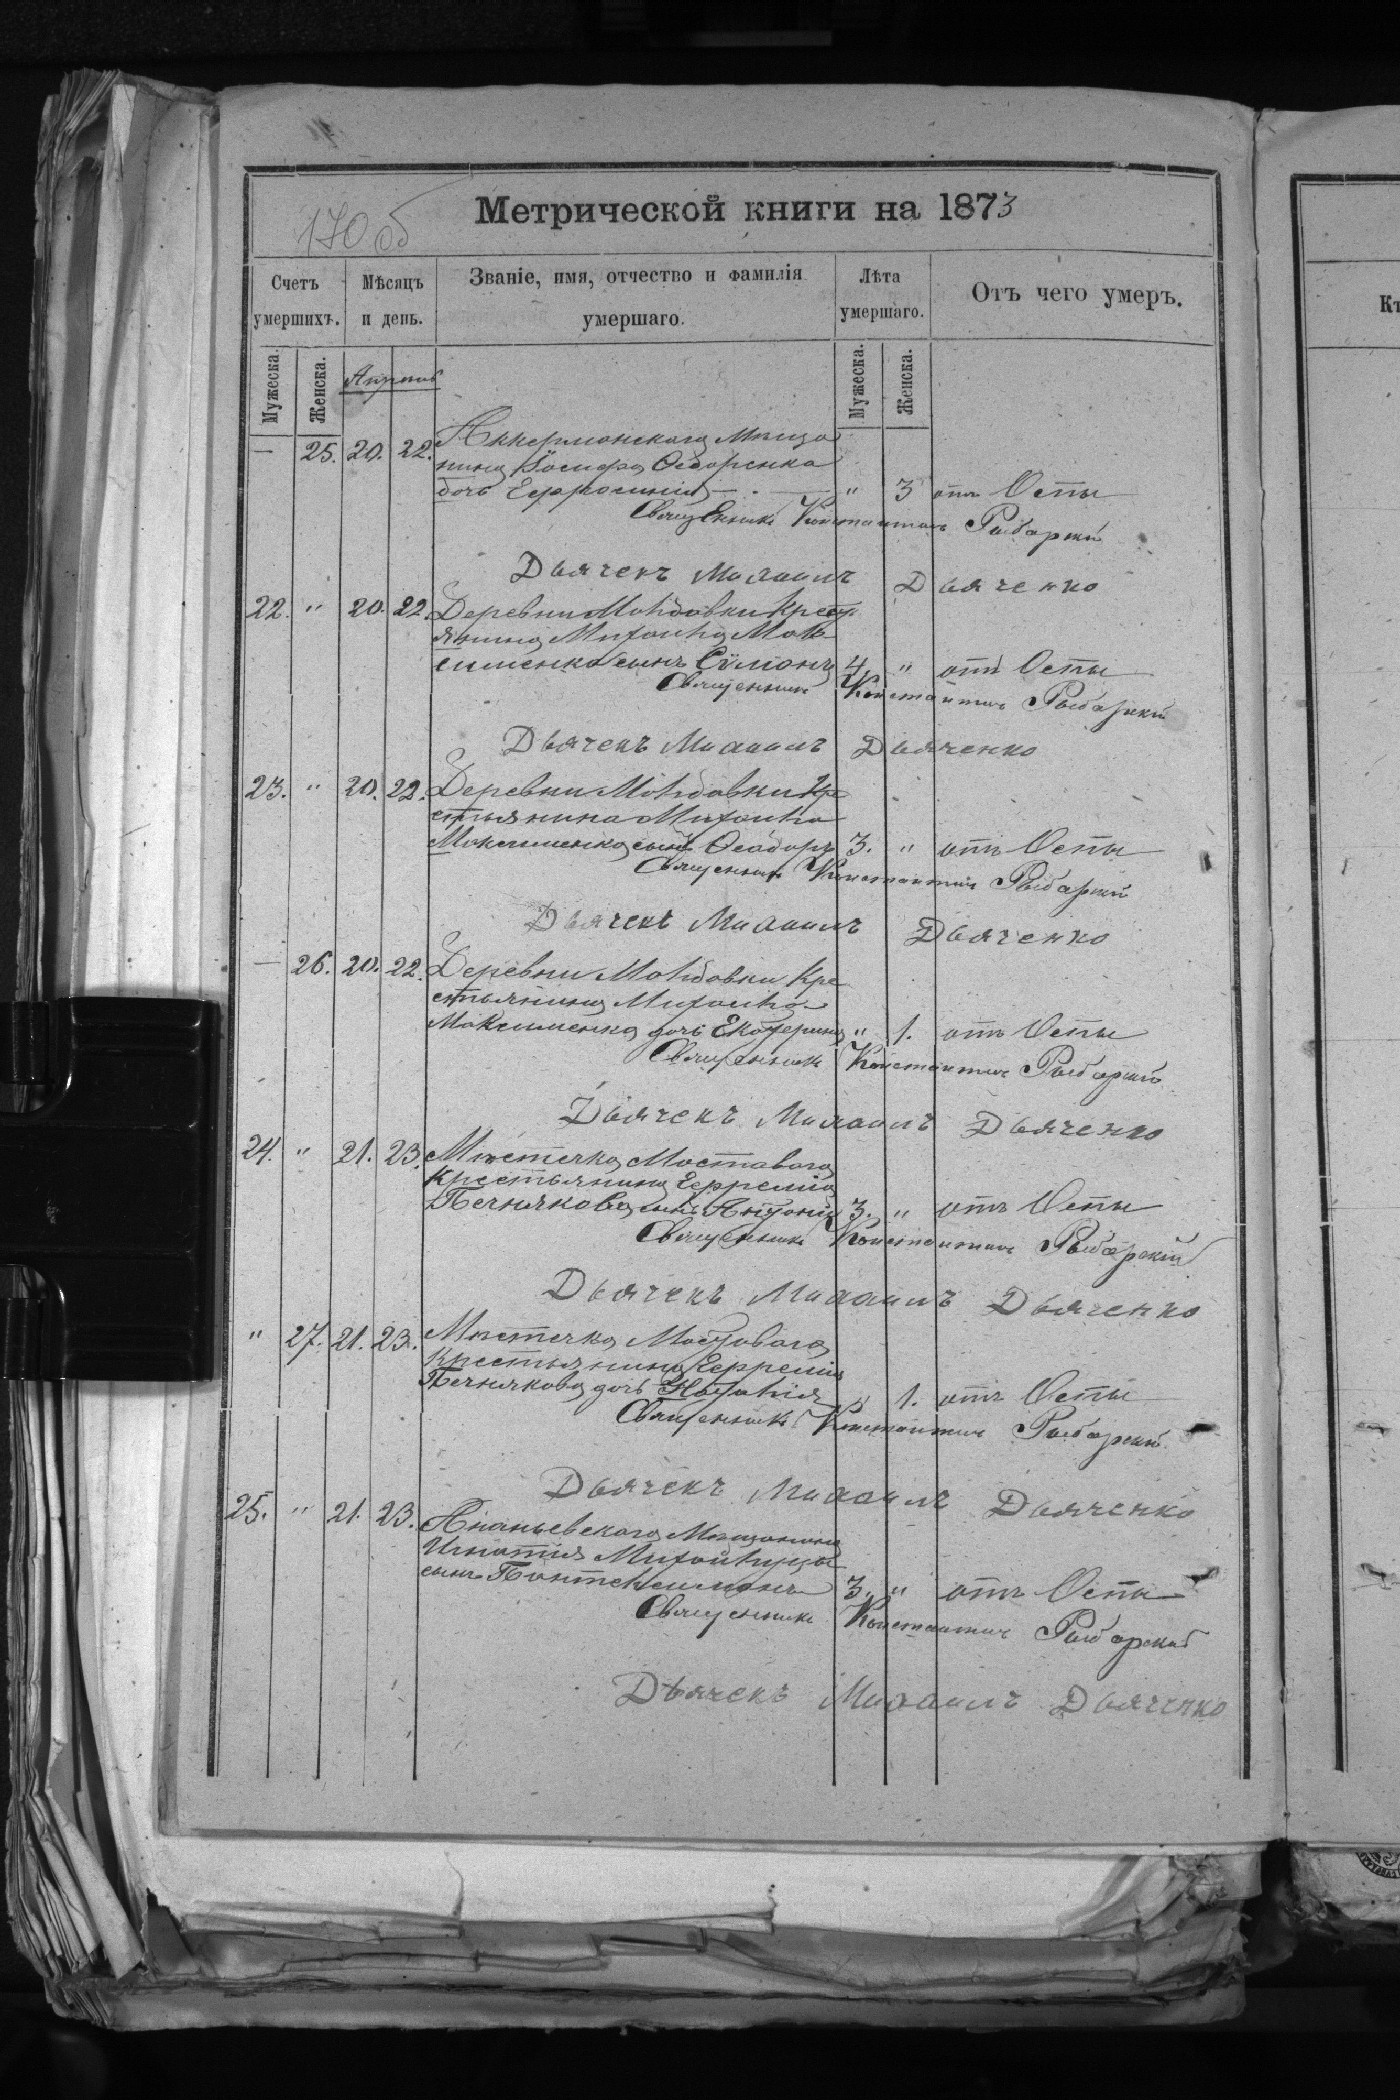 170 об
Метрической книги на 1873
Счетъ умершихъ.
Мѣсяцъ и день.
Званіе, имя, отчество и фамилія умершаго.
Лѣта умершаго.
Отъ чего умеръ.
Мужеска. Женска.
Мужеска. Женска.
Апрель
— 25. 20. 22. Аккерманского Мѣща
нина Іосифа Ѳедоренка
дочь Ефросинія — . — " 3 отъ Оспы
Священникъ Константинъ Рыбарскій
Дьячекъ Михаилъ Дьяченко
22. " 20. 22. Деревни Молдовки Крест
янина Михаила Мак
сименка сынъ Сімонъ 4. " отъ Оспы
Священникъ Константинъ Рыбарскій
Дьячекъ Михаилъ Дьяченко
23. " 20. 22. Деревни Молдовки Кре
стьянина Михаила
Максименка сынъ Ѳеодоръ 3. " отъ Оспы
Священникъ Константинъ Рыбарскій
Дьячекъ Михаилъ Дьяченко
— 26. 20. 22. Деревни Молдовки Кре
стьянина Михаила
Максименка дочь Екатерина " 1. отъ Оспы
Священникъ Константинъ Рыбарскій
Дьячекъ Михаилъ Дьяченко
24. " 21. 23. Мѣстечка Мостоваго
Крестьянина Ефремія
Печнякова сынъ Антоній 3. " отъ Оспы
Священникъ Константинъ Рыбарскій
Дьячекъ Михаилъ Дьяченко
" 27. 21. 23. Мѣстечка Мостоваго
Крестьянина Ефремія
Печнякова дочь Наталія " 1. отъ Оспы
Священникъ Константинъ Рыбарскій
Дьячекъ Михаилъ Дьяченко
25. " 21. 23. Ананьевского Мещанина
Игнатія Михайлуцы
сынъ Пантелеимонъ 3. " отъ Оспы
Священникъ Константинъ Рыбарскій
Дьячекъ Михаилъ Дьяченко